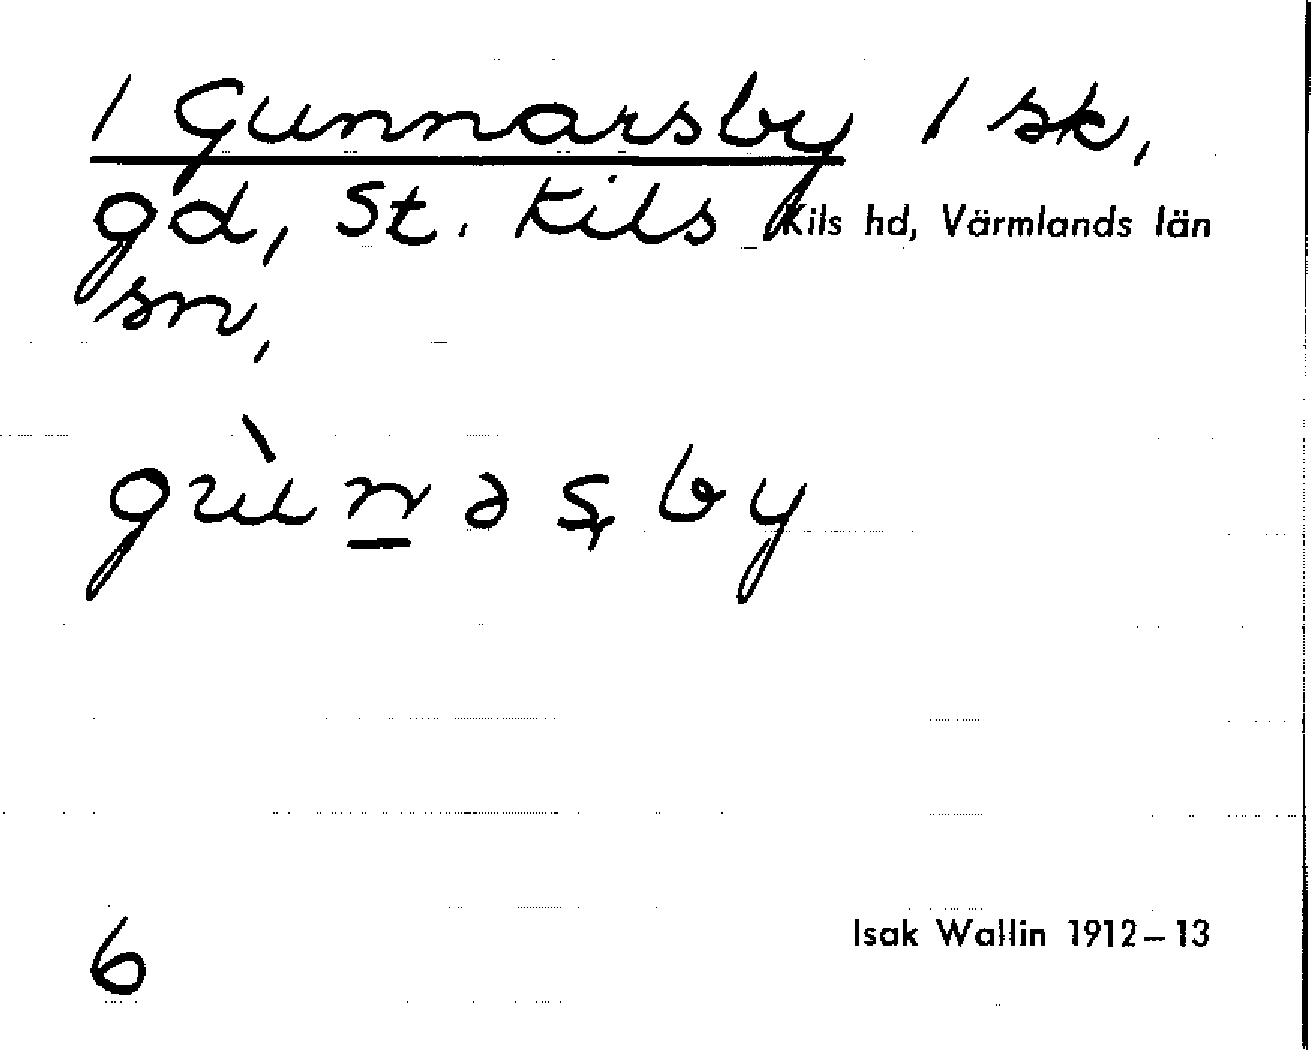 / Gunnarsby / sk,
gd, St. Kils Kils hd, Värmlands län
sn,
gu̇̀n̲əşby
6 Isak Wallin 1912–13